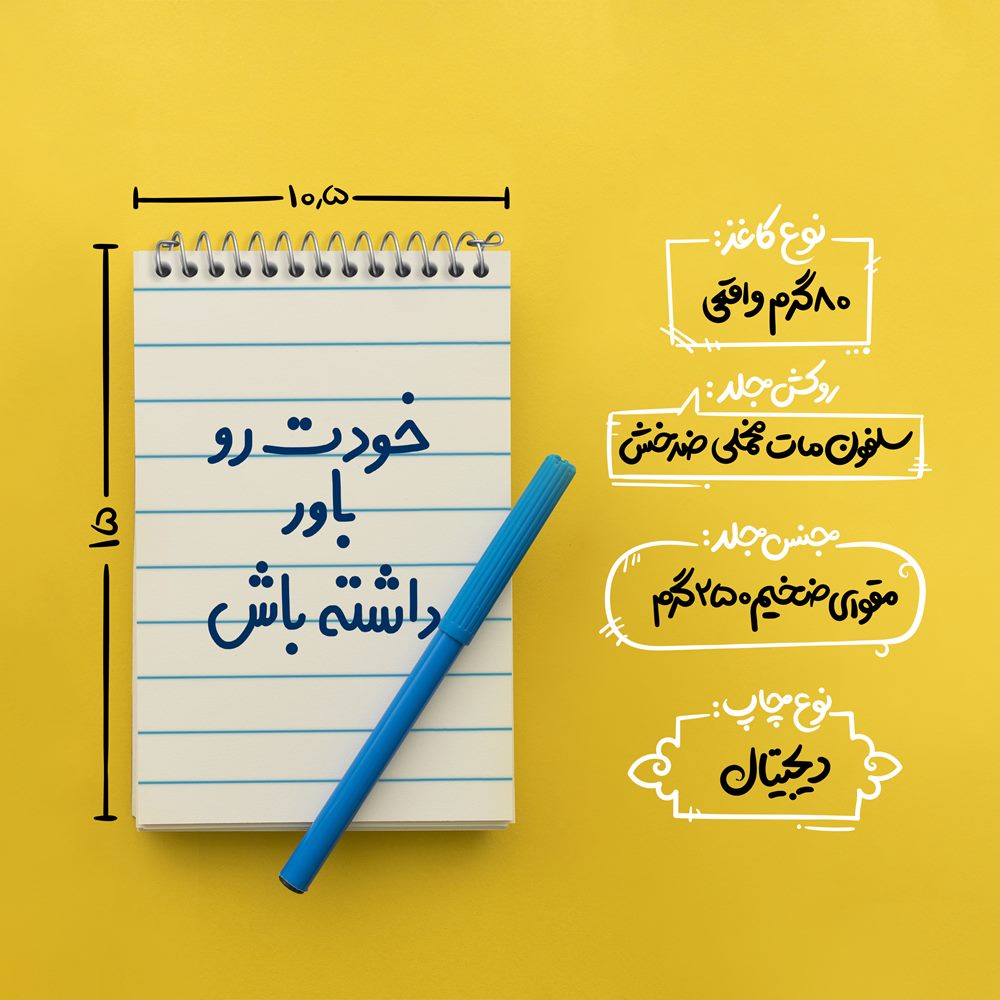 ۱۰٫۵
۱۵
خودت رو
باور
داشته باش
نوع کاغذ:
۸۰گرم واقعی
روکش جلد:
سلفون مات مخملی ضدخش
جنس جلد:
مقوای ضخیم ۲۵۰گرم
نوع چاپ:
دیجیتال